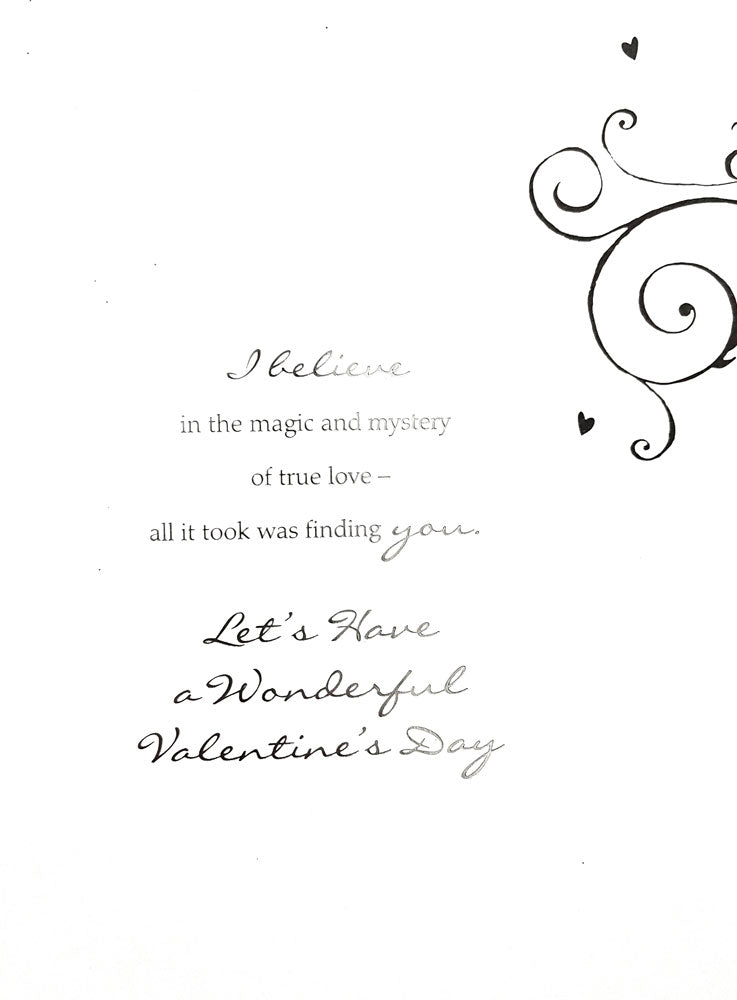 I believe
in the magic and mystery
of true love –
all it took was finding you.
Let's Have
a Wonderful
Valentine's Day